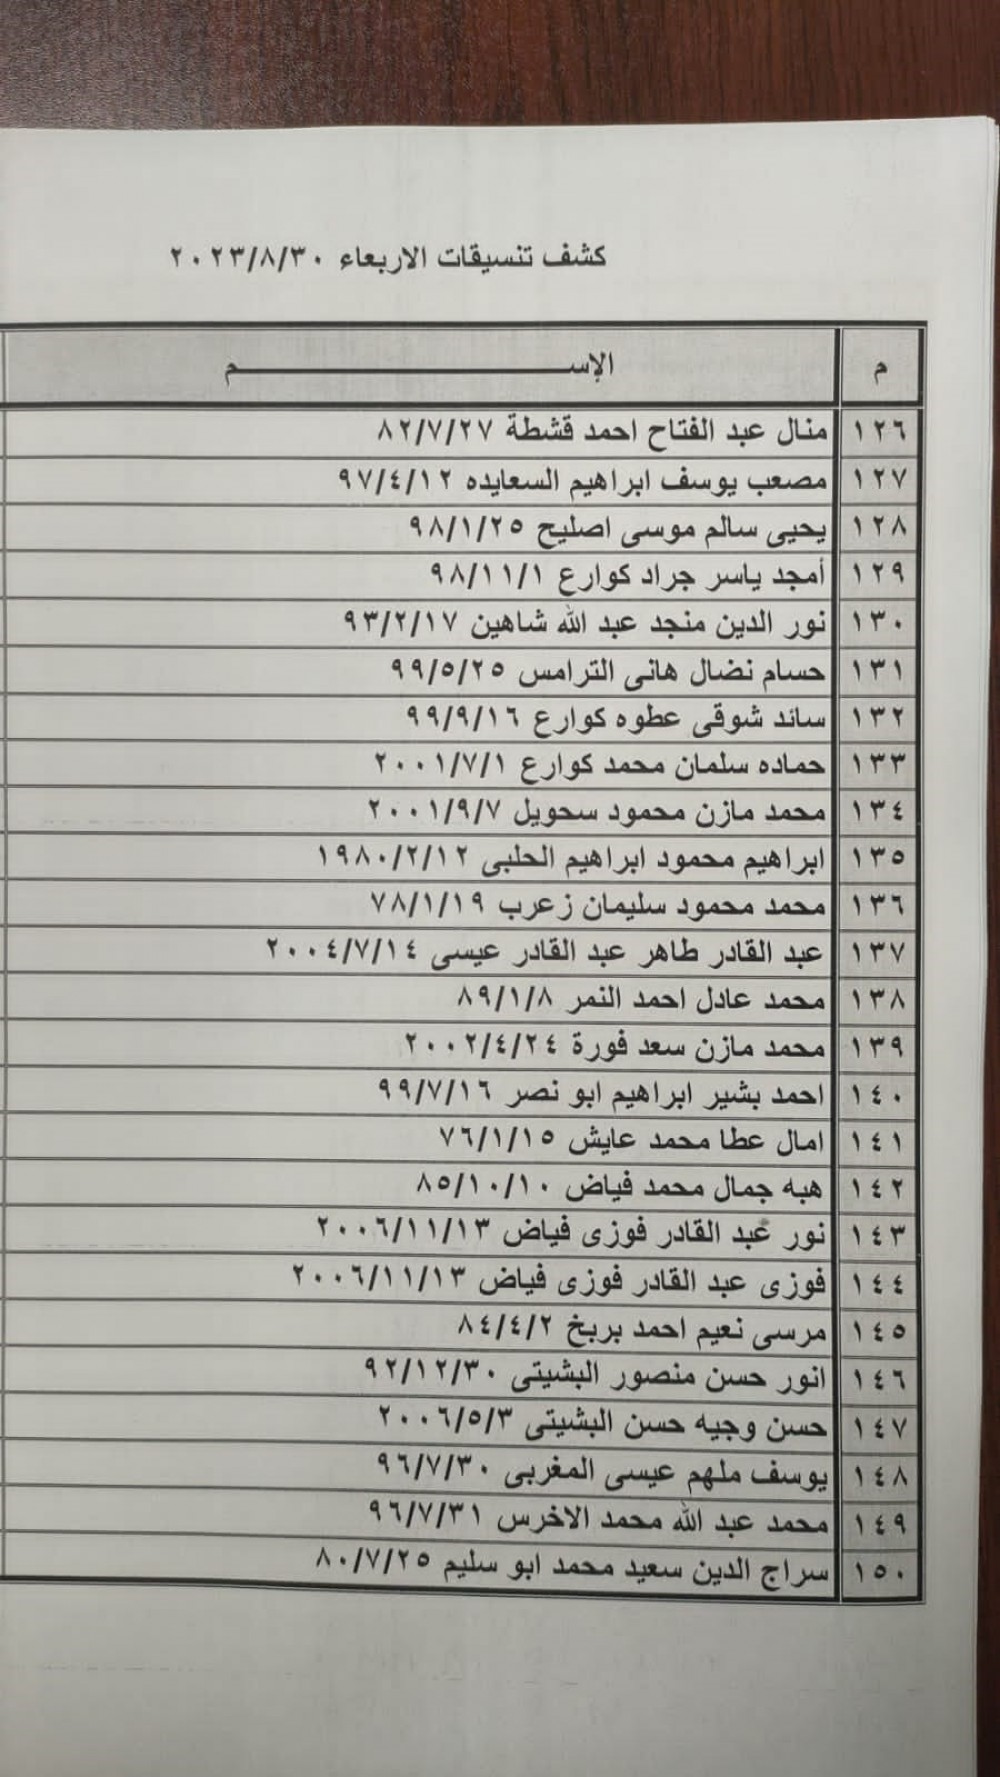 كشف تنسيقات الاربعاء ٢٠٢٣/٨/٣٠
م الإســـــــــــــم
١٢٦ منال عبد الفتاح احمد قشطة ٨٢/٧/٢٧
١٢٧ مصعب يوسف ابراهيم السعايده ٩٧/٤/١٢
١٢٨ يحيى سالم موسى اصليح ٩٨/١/٢٥
١٢٩ أمجد ياسر جراد كوارع ٩٨/١١/١
١٣٠ نور الدين منجد عبد الله شاهين ٩٣/٢/١٧
١٣١ حسام نضال هانى الترامس ٩٩/٥/٢٥
١٣٢ سائد شوقى عطوه كوارع ٩٩/٩/١٦
١٣٣ حماده سلمان محمد كوارع ٢٠٠١/٧/١
١٣٤ محمد مازن محمود سحويل ٢٠٠١/٩/٧
١٣٥ ابراهيم محمود ابراهيم الحلبى ١٩٨٠/٢/١٢
١٣٦ محمد محمود سليمان زعرب ٧٨/١/١٩
١٣٧ عبد القادر طاهر عبد القادر عيسى ٢٠٠٤/٧/١٤
١٣٨ محمد عادل احمد النمر ٨٩/١/٨
١٣٩ محمد مازن سعد فورة ٢٠٠٢/٤/٢٤
١٤٠ احمد بشير ابراهيم ابو نصر ٩٩/٧/١٦
١٤١ امال عطا محمد عايش ٧٦/١/١٥
١٤٢ هبه جمال محمد فياض ٨٥/١٠/١٠
١٤٣ نور عبد القادر فوزى فياض ٢٠٠٦/١١/١٣
١٤٤ فوزى عبد القادر فوزى فياض ٢٠٠٦/١١/١٣
١٤٥ مرسى نعيم احمد بربخ ٨٤/٤/٢
١٤٦ انور حسن منصور البشيتى ٩٢/١٢/٣٠
١٤٧ حسن وجيه حسن البشيتى ٢٠٠٦/٥/٣
١٤٨ يوسف ملهم عيسى المغربى ٩٦/٧/٣٠
١٤٩ محمد عبد الله محمد الاخرس ٩٦/٧/٣١
١٥٠ سراج الدين سعيد محمد ابو سليم ٨٠/٧/٢٥